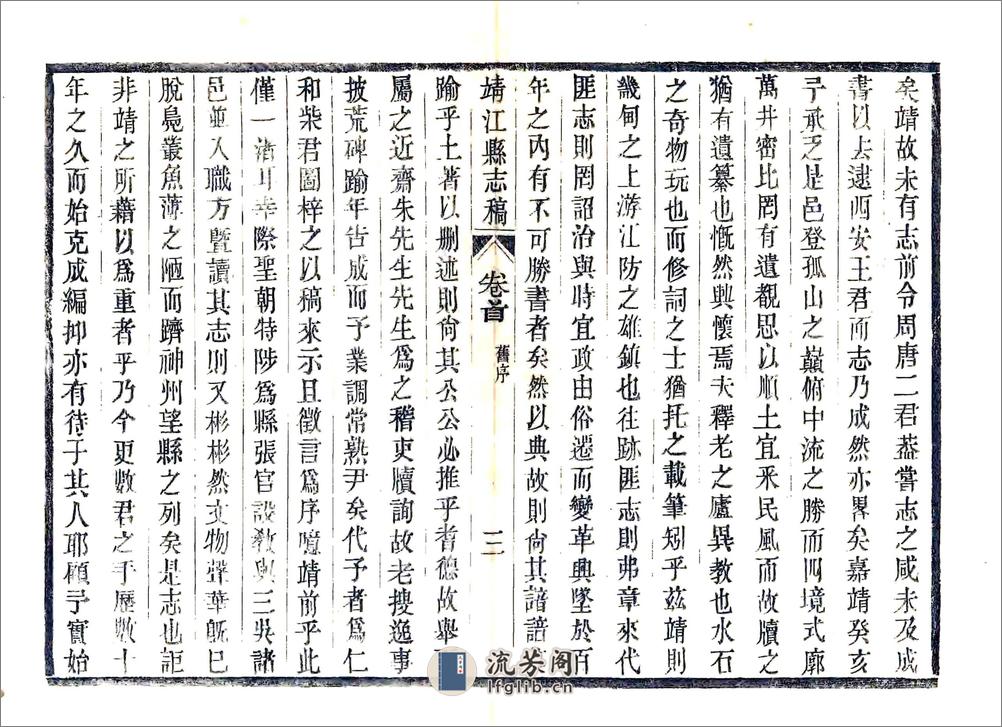 矣靖故未有志前令周唐二君葢嘗志之咸未及成
書以去逮西安王君而志乃成然亦畧矣嘉靖癸亥
予承乏是邑登孤山之巔俯中流之勝而四境式廓
萬井密比罔有遺覩思以順土宜釆民風而故牘之
猶有遺纂也慨然興懷焉夫釋老之廬異教也水石
之奇物玩也而修詞之士猶托之載筆矧乎茲靖則
畿甸之上游江防之雄鎮也往跡匪志則弗章來代
匪志則罔詔治與時宜政由俗遷而變革興墜於百
年之內有不可勝書者矣然以典故則尙其諳諳
靖江縣志稿 卷首 舊序 三
踰乎土著以删述則尙其公公必推乎耆德故舉
屬之近齋朱先生先生爲之稽吏牘詢故老搜逸事
披荒碑踰年告成而予業調常熟尹矣代予者爲仁
和柴君圖梓之以稿來示且徵言爲序噫靖前乎此
僅一渚耳幸際聖朝特陟爲縣張官設教與三吳諸
邑並入職方暨讀其志則又彬彬然文物聲華旣已
脫鳧叢魚薄之陋而躋神州望縣之列矣是志也詎
非靖之所藉以爲重者乎乃今更數君之手歷數十
年之久而始克成編抑亦有待于其人耶顧予實始
流芳阁
lfglib.cn